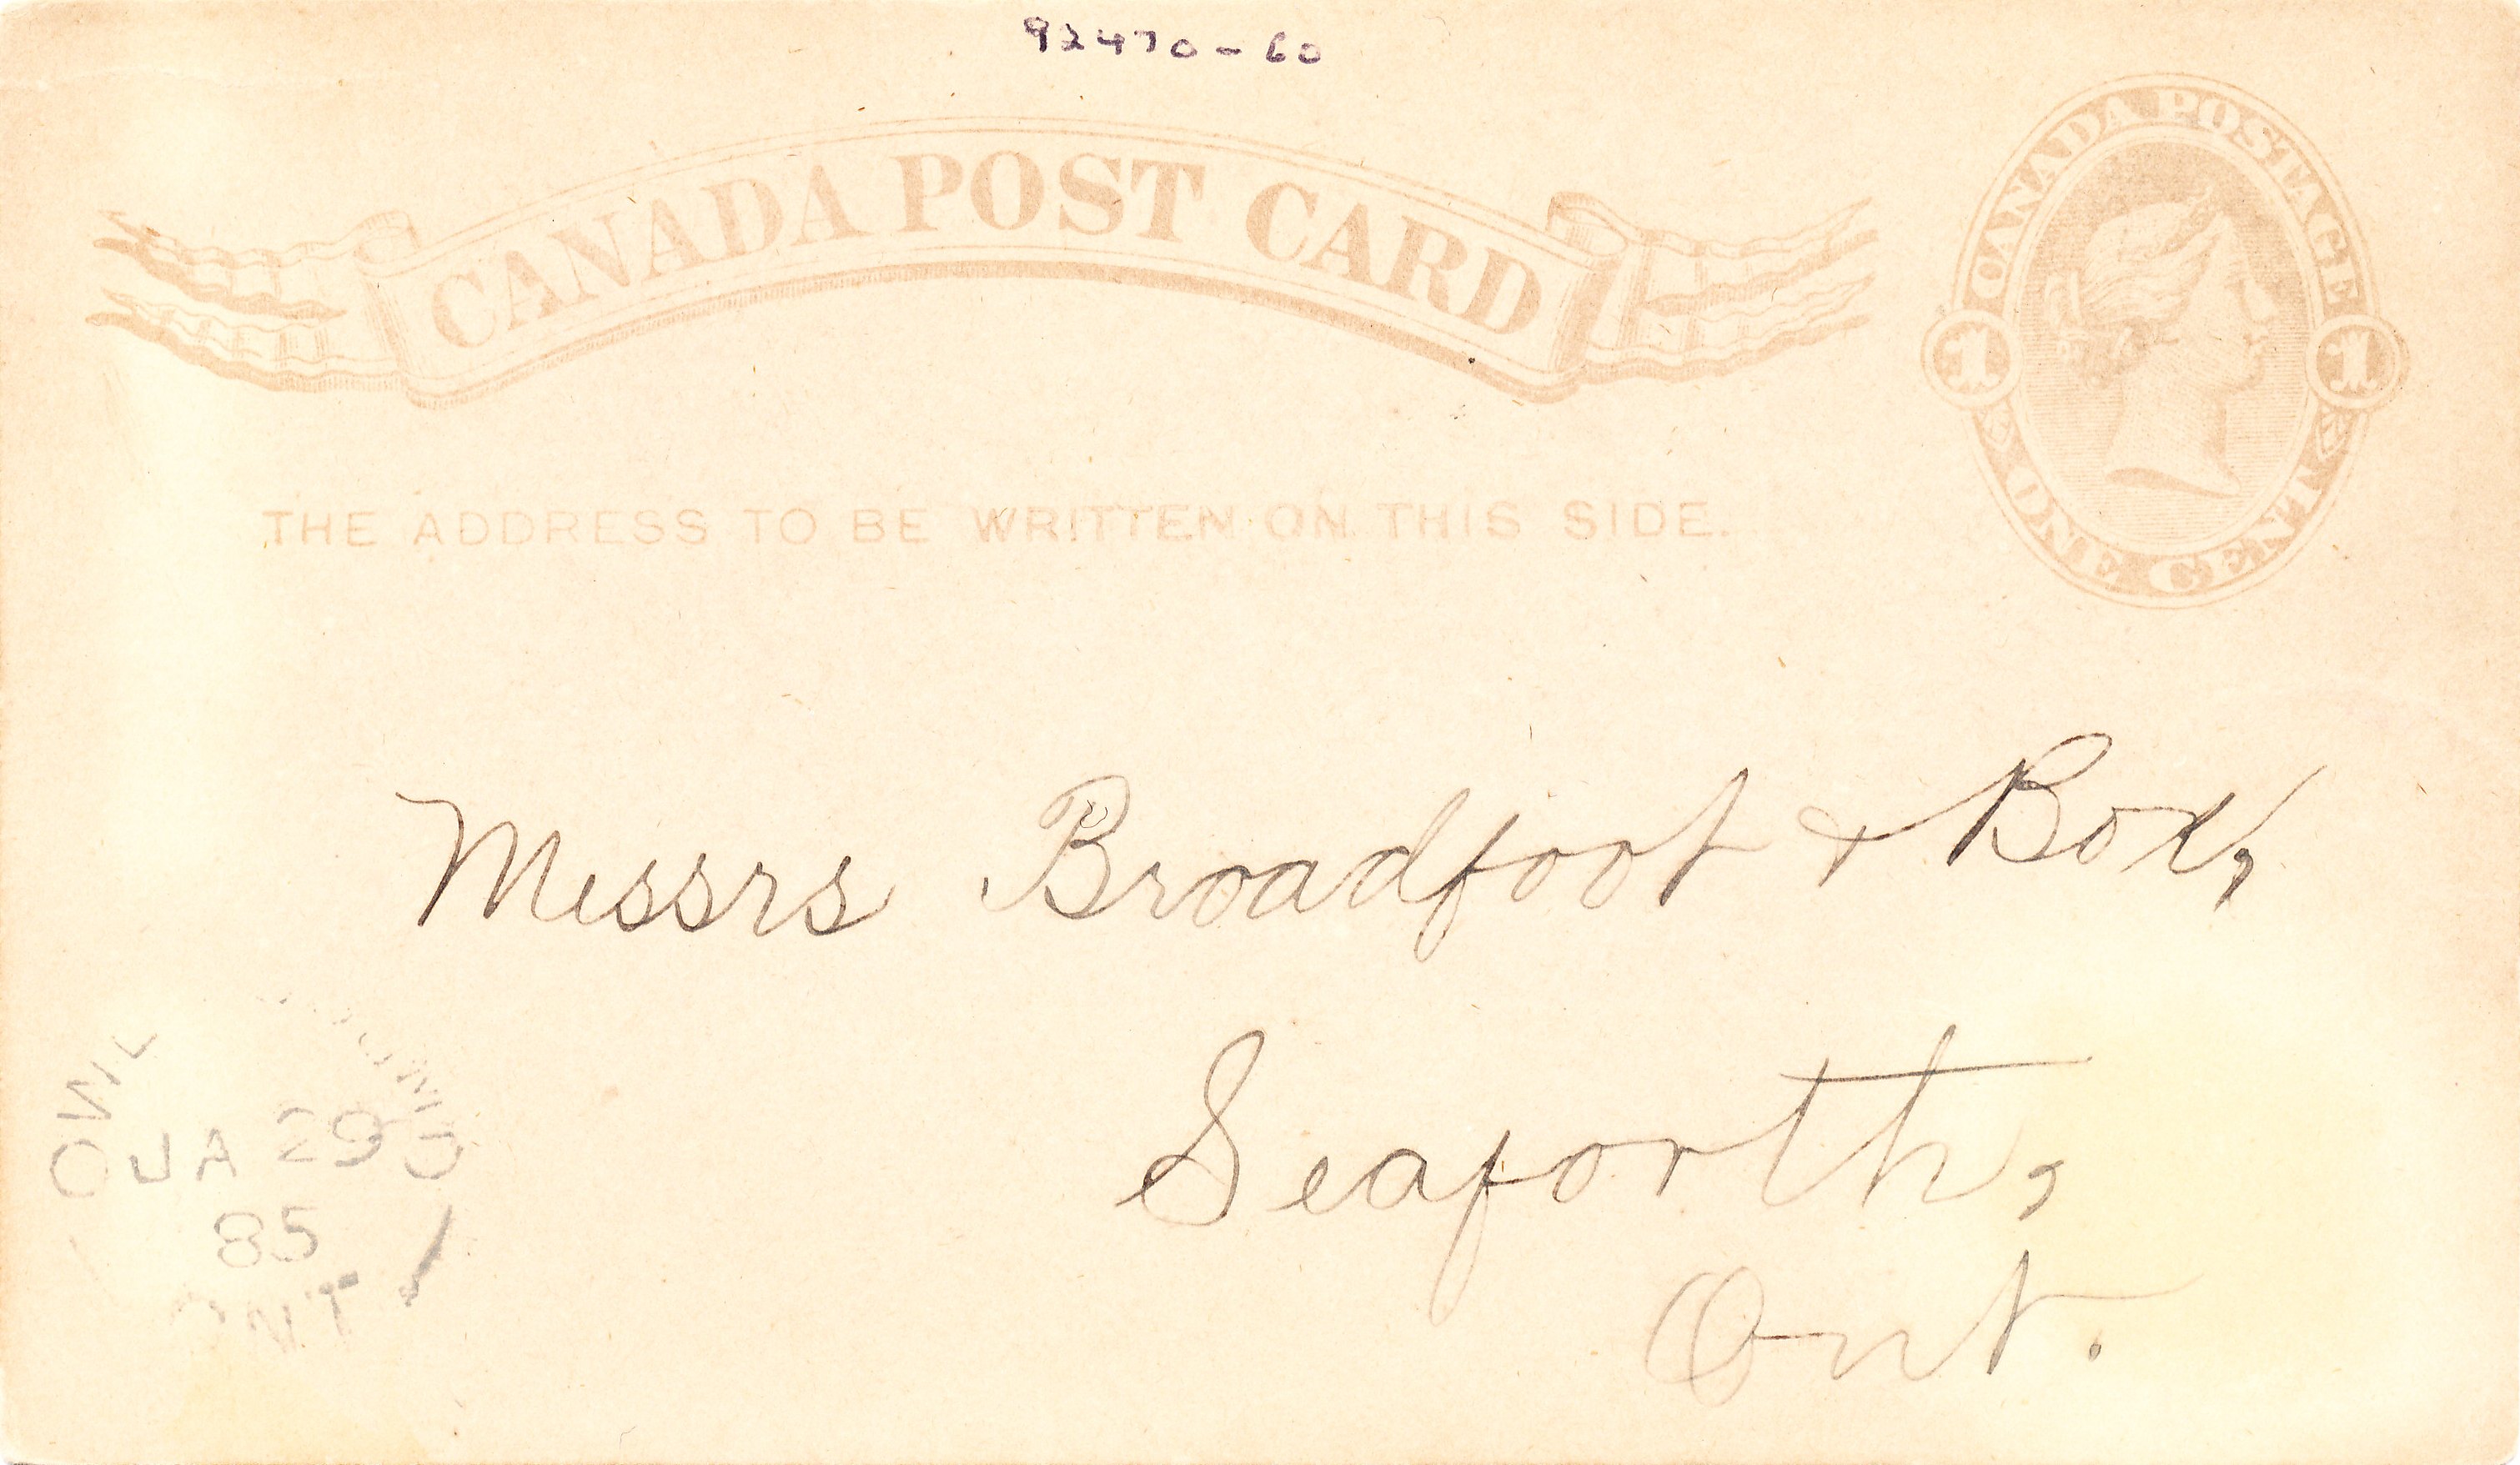 92470-60
CANADA POST CARD
CANADA POSTAGE
1 1
ONE CENT
THE ADDRESS TO BE WRITTEN ON THIS SIDE.
Messrs Broadfoot & Box,
Seaforth,
Ont.
OWEN SOUND
JA 29
85
ONT